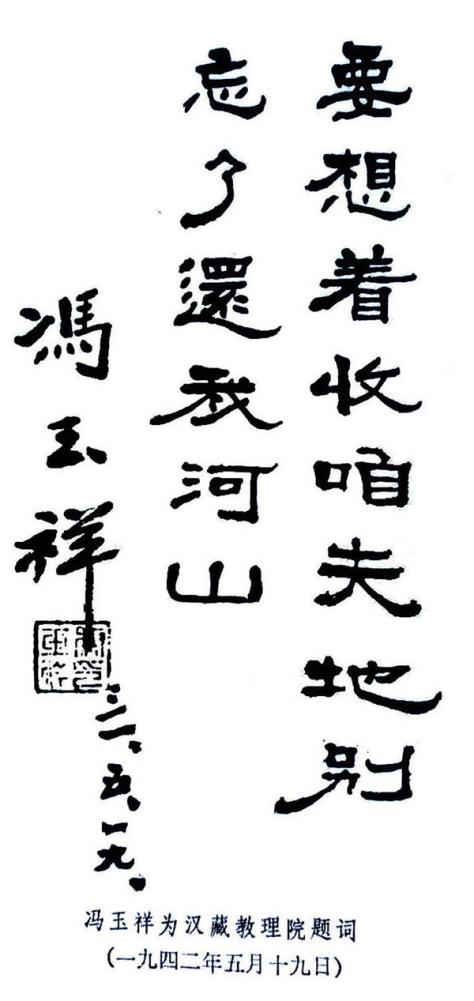 要想着收咱失地别
忘了還我河山
馮玉祥
三一、五、一九.
冯玉祥为汉藏教理院题词
(一九四二年五月十九日)